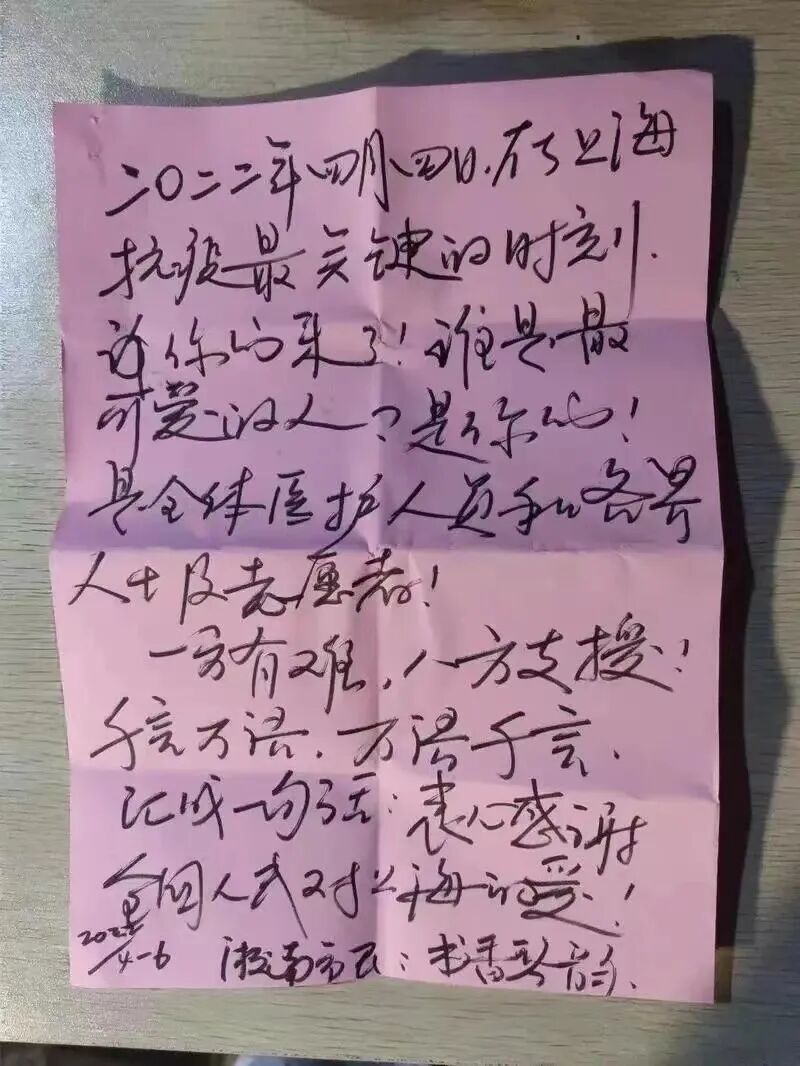 二〇二二年四月四日,在上海
抗疫最关键的时刻.
你们来了!谁是最
可爱的人?是你们!
是全体医护人员和各界
人士及志愿者!
一方有难,八方支援!
千言万语,万语千言,
汇成一句话:衷心感谢
全国人民对上海的爱!
2022
4-6 市民:书香琴韵.